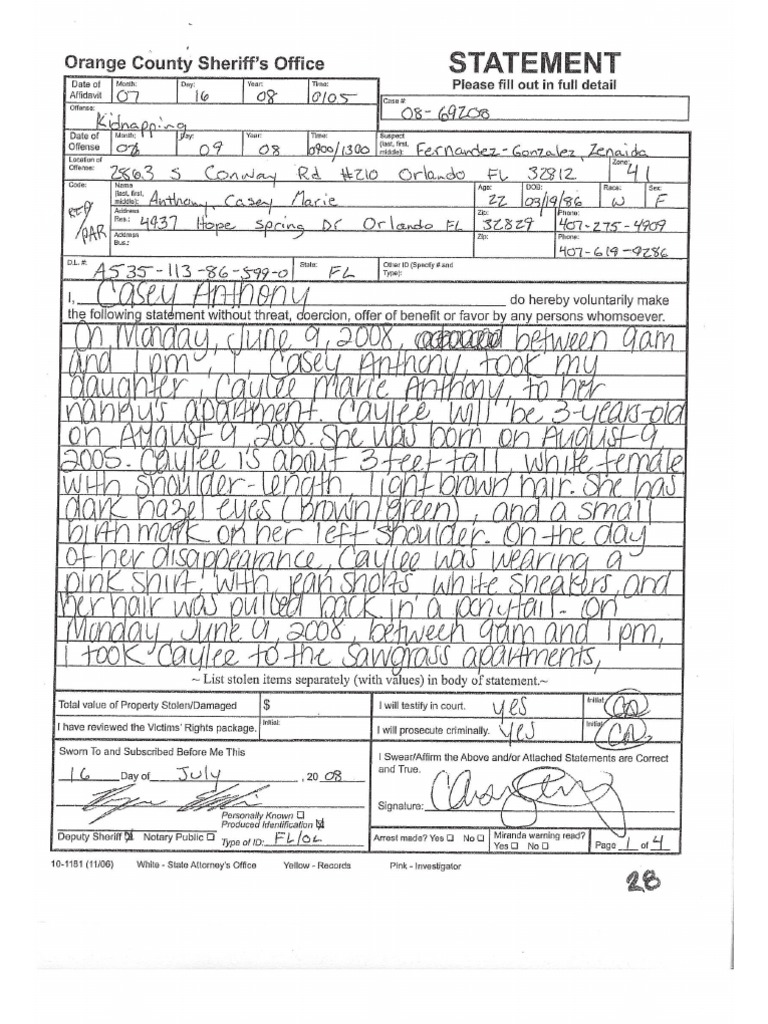 Orange County Sheriff's Office
STATEMENT
Please fill out in full detail
Date of Affidavit Month: 07 Day: 16 Year: 08 Time: 0105
Case #: 08-69208
Offense: Kidnapping
Date of Offense Month: 06 Day: 09 Year: 08 Time: 0900/1300 Suspect (last, first, middle): Fernandez-Gonzalez, Zenaida
Location of Offense: 2863 S Conway Rd #210 Orlando FL 32812 Zone: 41
Code: REP/PAR Name (last, first, middle): Anthony, Casey Marie Age: 22 DOB: 03/19/86 Race: W Sex: F
Address Res.: 4937 Hope Spring Dr Orlando FL Zip: 32829 Phone: 407-275-4909
Address Bus.: Zip: Phone: 407-619-9286
D.L. #: A535-113-86-599-0 State: FL Other ID (Specify # and Type):
I, Casey Anthony do hereby voluntarily make
the following statement without threat, coercion, offer of benefit or favor by any persons whomsoever.
On Monday, June 9, 2008, between 9am
and 1pm, I, Casey Anthony, took my
daughter, Caylee Marie Anthony, to her
nanny's apartment. Caylee will be 3-years-old
on August 9, 2008. She was born on August 9,
2005. Caylee is about 3 feet tall, white female
with shoulder-length light brown hair. She has
dark hazel eyes (brown/green), and a small
birthmark on her left shoulder. On the day
of her disappearance, Caylee was wearing a
pink shirt with jean shorts, white sneakers, and
her hair was pulled back in a ponytail. On
Monday, June 9, 2008, between 9am and 1pm,
I took Caylee to the Sawgrass apartments,
~ List stolen items separately (with values) in body of statement.~
Total value of Property Stolen/Damaged $ I will testify in court. yes Initial: CA
I have reviewed the Victims' Rights package. Initial: I will prosecute criminally. yes Initial: CA
Sworn To and Subscribed Before Me This
16 Day of July, 2008
I Swear/Affirm the Above and/or Attached Statements are Correct
and True.
Signature:
Personally Known
Produced Identification
Deputy Sheriff Notary Public Type of ID: FL/OL
Arrest made? Yes No Miranda warning read? Yes No Page 1 of 4
10-1181 (11/06) White - State Attorney's Office Yellow - Records Pink - Investigator
28